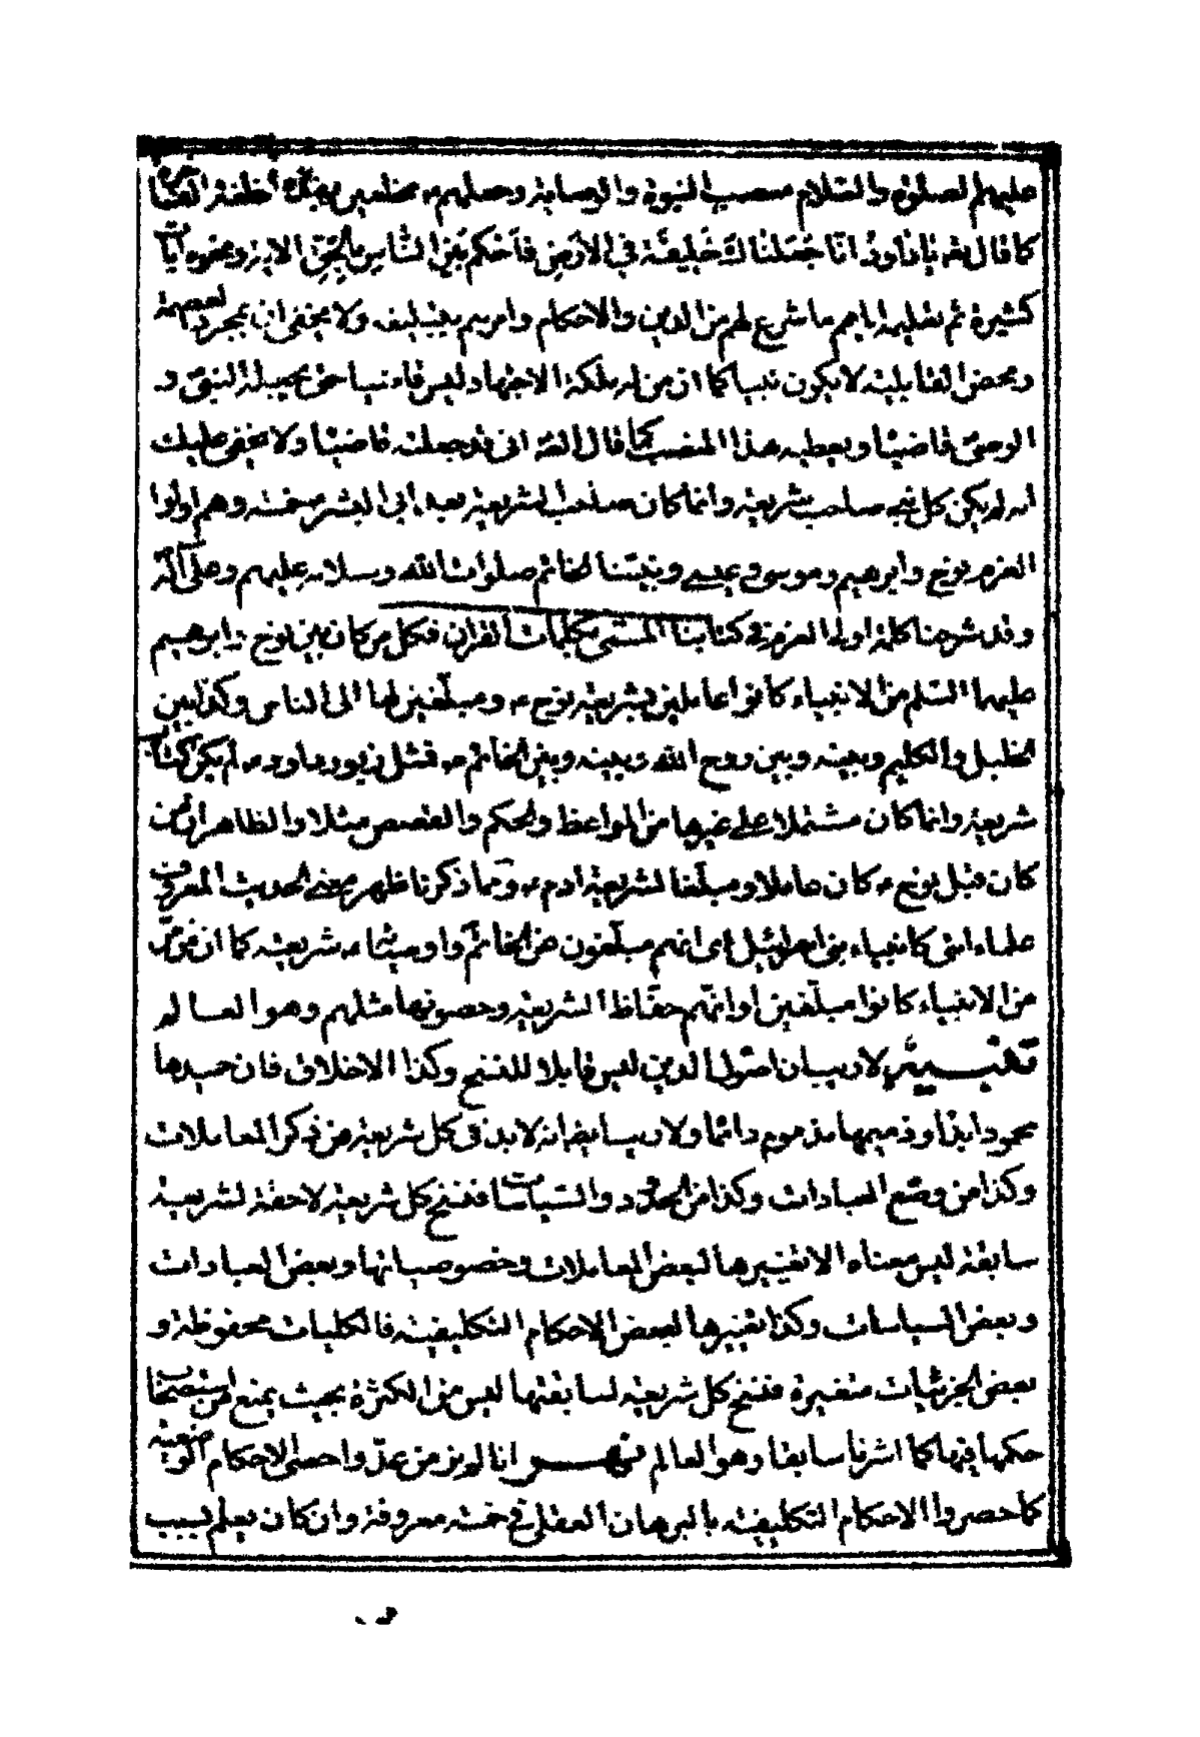 عليهم الصلوة والسلام منصب النبوة والوصاية وجعلهم مظهرين
كما قال تعم يا داود انا جعلناك خليفة في الارض فاحكم بين الناس بالحق الاية ونحوه ايات
كثيرة ثم تعليمه اياهم ما شرع لهم من الدين والاحكام وامرهم بتبليغه ولا يخفى ان بمجرد العصمة
ومحض القابلية لا يكون نبيا كما ان من له ملكة الاجتهاد ليس قاضيا حتى يجعله النبي و
الوصي قاضيا ويعطيه هذا المنصب كما قال الصم اني قد جعلته قاضيا ولا يخفى عليك
انه لم يكن كل نبي صاحب شريعة وانما كان صاحب الشريعة بعد ابي البشر خمسة وهم اولوا
العزم نوح وابرهيم وموسى وعيسى ونبينا الخاتم صلوات الله وسلامه عليهم وعلى آله
وقد شرحنا كلمة اولوا العزم في كتابنا المسمى بكلمات القران فكل من كان بين نوح وابرهيم
عليهما السلم من الانبياء كانوا عاملين بشريعة نوح ع ومبلغين لها الى الناس وكذا بين
الخليل والكليم وبينه وبين روح الله وبينه وبين الخاتم ص فمثل زبور داود ع لم يكن كتاب
شريعة وانما كان مشتملا على غيرها من المواعظ والحكم والقصص مثلا والظاهر ان من
كان قبل نوح ع كان عاملا ومبلغا لشريعة ادم ع ومما ذكرنا ظهر معنى الحديث المعروف
علماء امتي كانبياء بني اسرائيل اي انهم مبلغون عن الخاتم واوصيائه شريعته كما ان غيرهم
من الانبياء كانوا مبلغين او انهم حفاظ الشريعة وحصونها مثلهم وهو العالم
تنبيه لا ريب ان اصول الدين ليس قابلا للنسخ وكذا الاخلاق فان حميدها
محمود ابدا وذميمها مذموم دائما ولا ريب ايضا انه لا بد في كل شريعة من ذكر المعاملات
وكذا من وضع العبادات وكذا من الحدود والسياسات فنسخ كل شريعة لاحقة لشريعة
سابقة ليس معناه الا تغييرها لبعض المعاملات وخصوصياتها وبعض العبادات
وبعض السياسات وكذا تغييرها لبعض الاحكام التكليفية فالكليات محفوظة و
بعض الجزئيات متغيرة فنسخ كل شريعة لسابقتها ليس من الكثرة بحيث يمنع من استصحاب
حكمها فيها كما اشرنا سابقا وهو العالم انا لم نر من عد واحصى الاحكام الوضعية
كما حصروا الاحكام التكليفية بالبرهان العقلي في خمسة معروفة وان كان يعلم بسبب